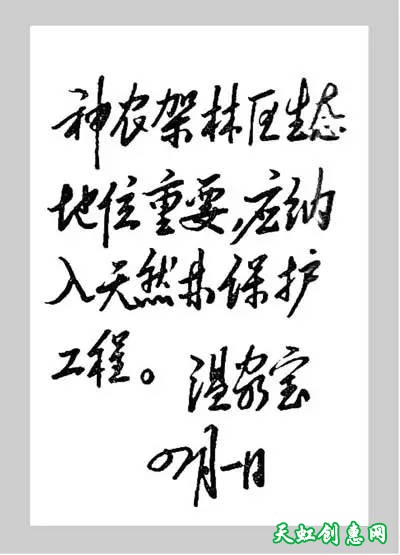 神农架林区生态
地位重要,应纳
入天然林保护
工程。温家宝
月一日
天虹创意网